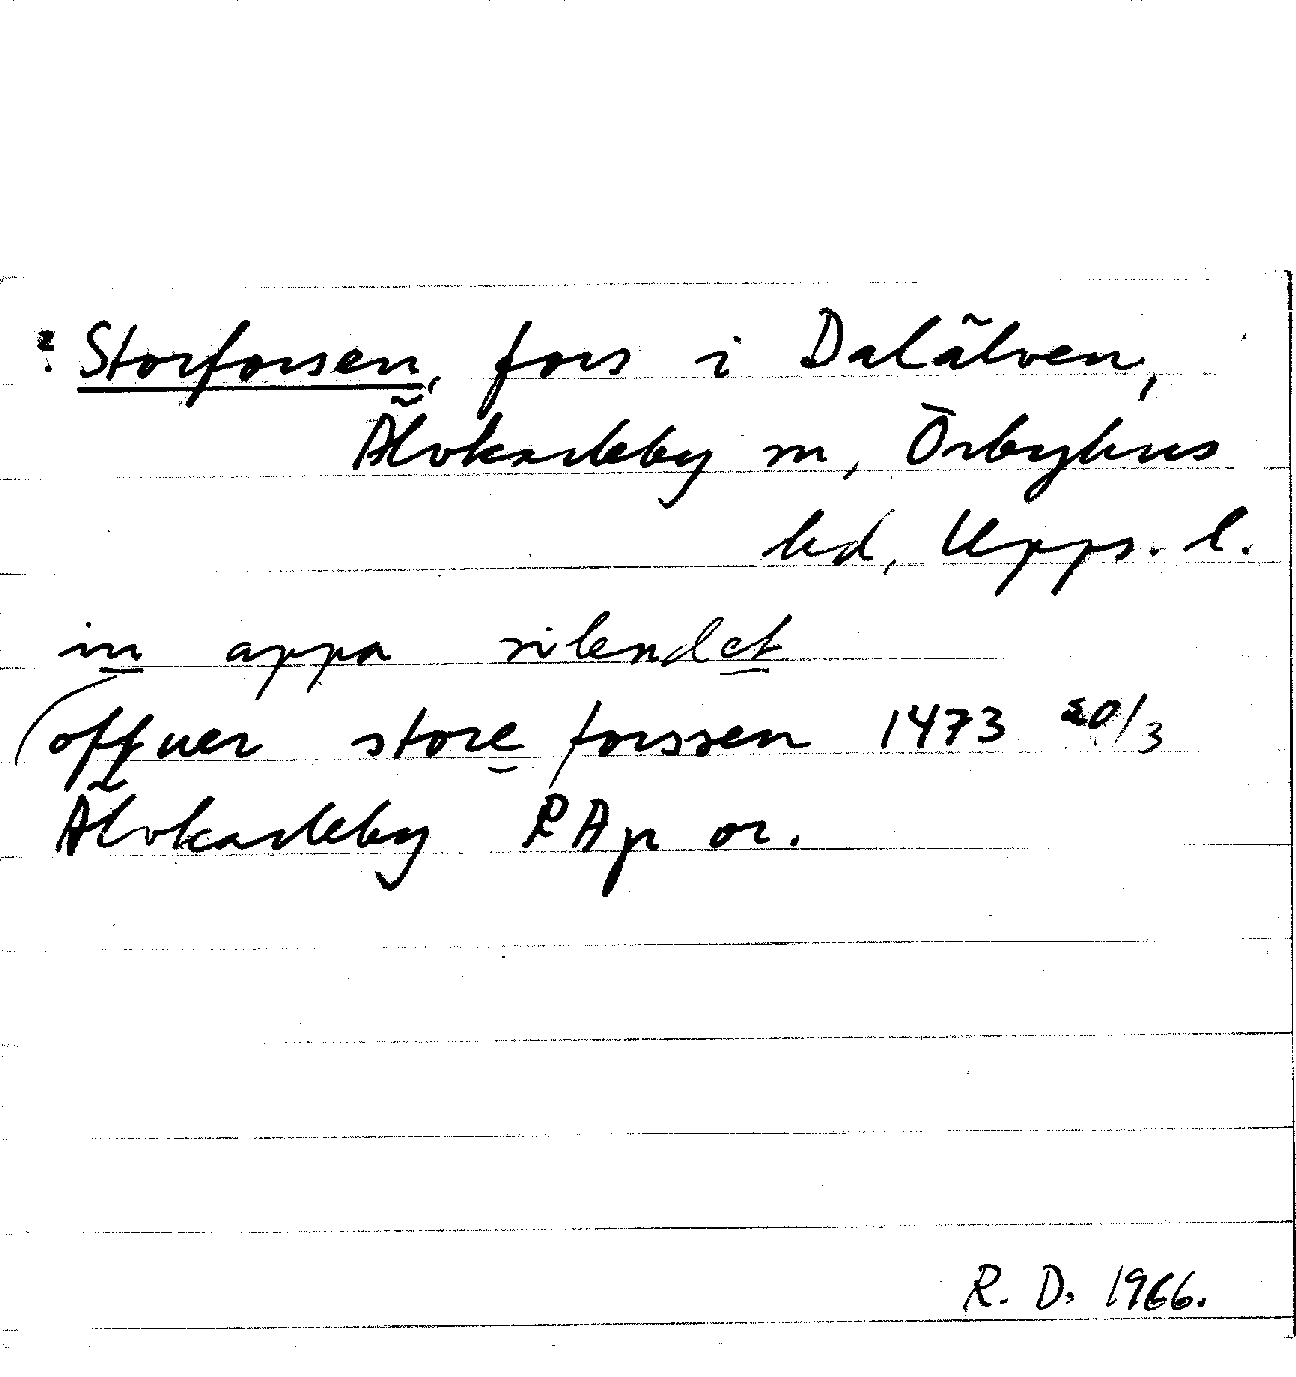 : Storforsen, fors i Dalälven,
Älvkarleby sn, Örbyhus
hd, Upps. l.
in appa silendet
(offuer store forssen 1473 20/3
Älvkarleby RAp or.
R. D. 1966.